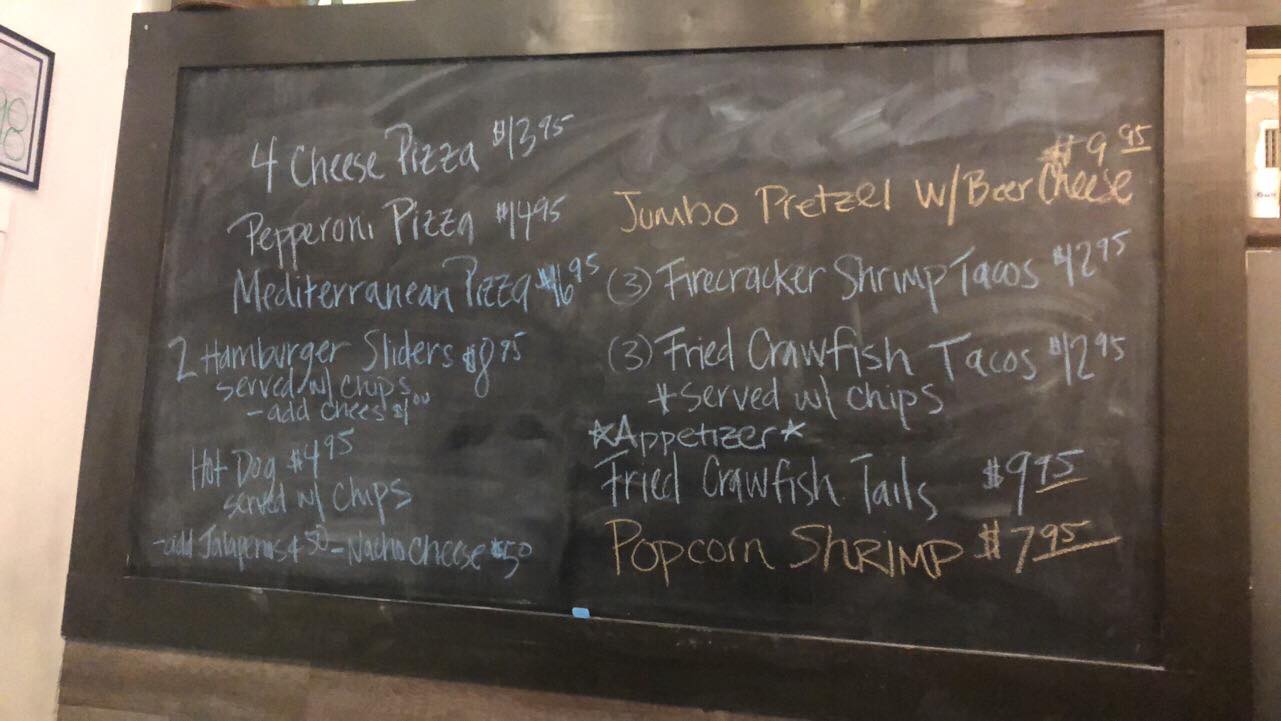 4 Cheese Pizza $13.95
Pepperoni Pizza $14.95
Mediterranean Pizza $16.95
2 Hamburger Sliders $8.95
served w/ chips
- add chees $1.00
Hot Dog $4.95
served w/ chips
- add Jalapenos $.50 - Nacho Cheese $.50
$9.95
Jumbo Pretzel w/ Beer Cheese
(3) Firecracker Shrimp Tacos $12.95
(3) Fried Crawfish Tacos $12.95
*served w/ chips
*Appetizer*
Fried Crawfish Tails $9.95
Popcorn Shrimp $7.95